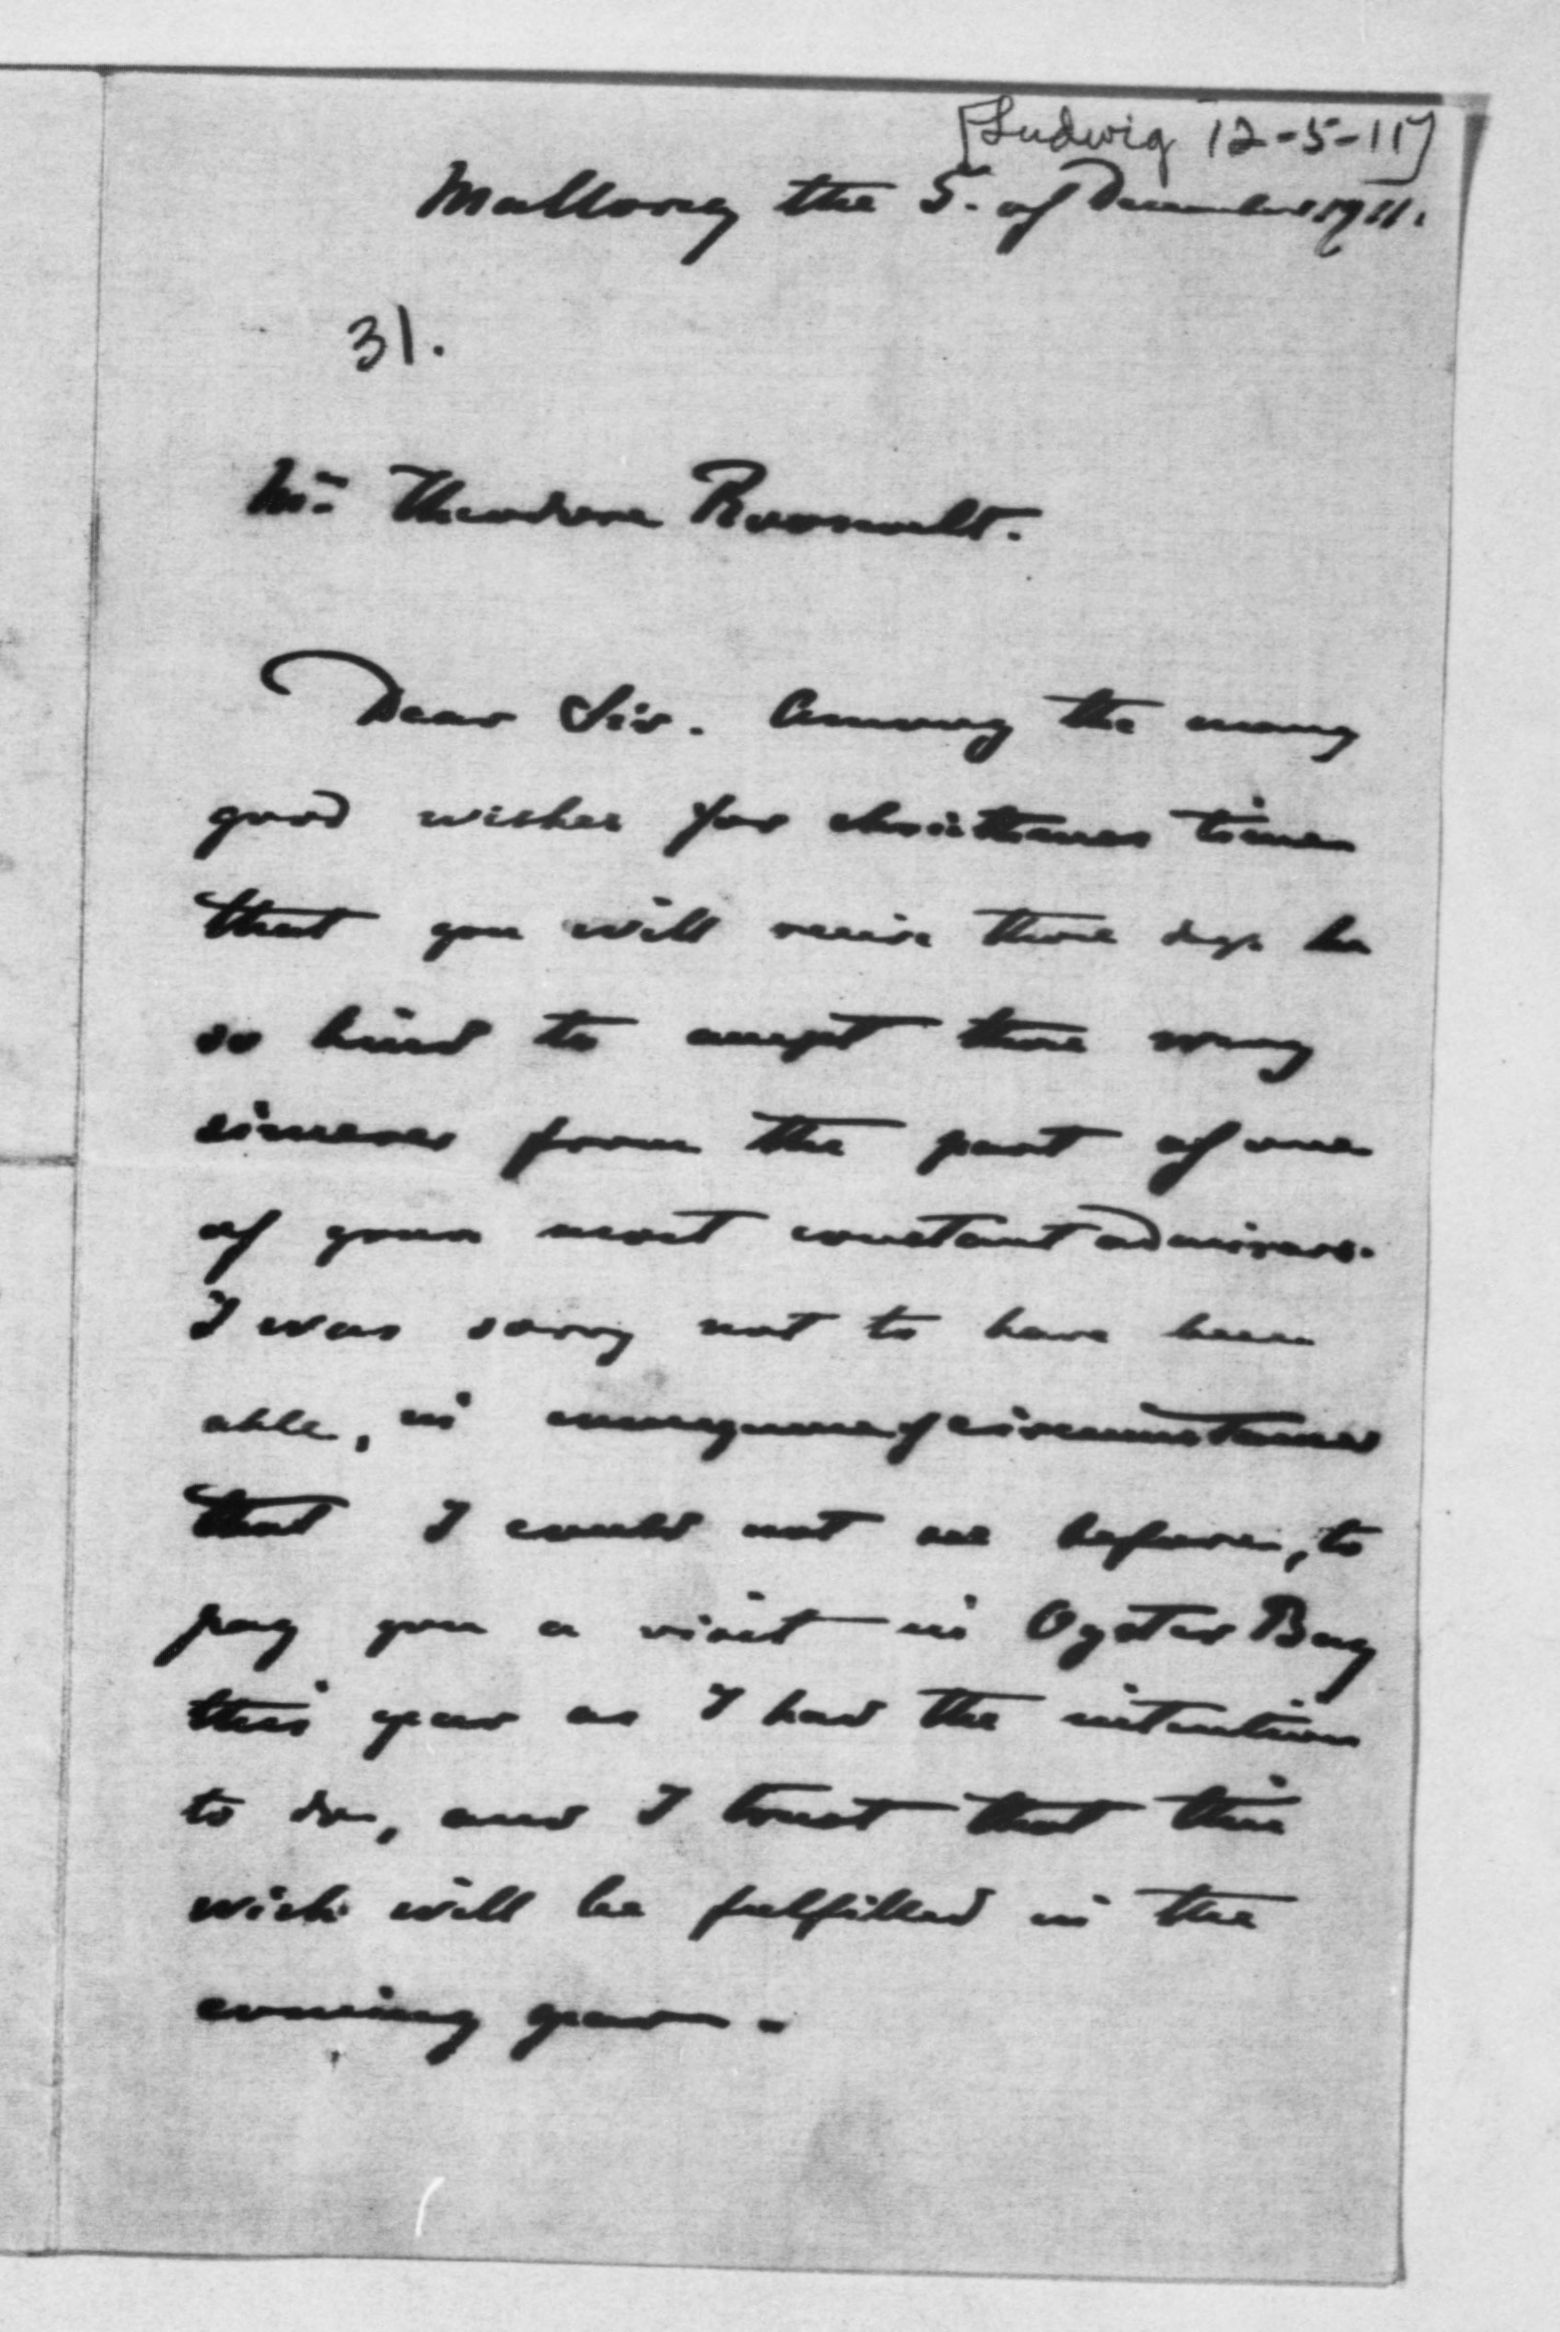 [Ludwig 12-5-11]
Mallorg the 5. of December 1911.
31.
Mr. Theodore Roosevelt.
Dear Sir. Among the many
good wishes for christmas time
that you will receive these days be
so kind to accept these very
sinceres from the part of one
of your most constant admirers.
I was sorry not to have been
able, in consequence of circumstances
that I could not see before, to
pay you a visit in Oyster Bay
this year as I had the intention
to do, and I trust that this
wish will be fulfilled in the
coming year.